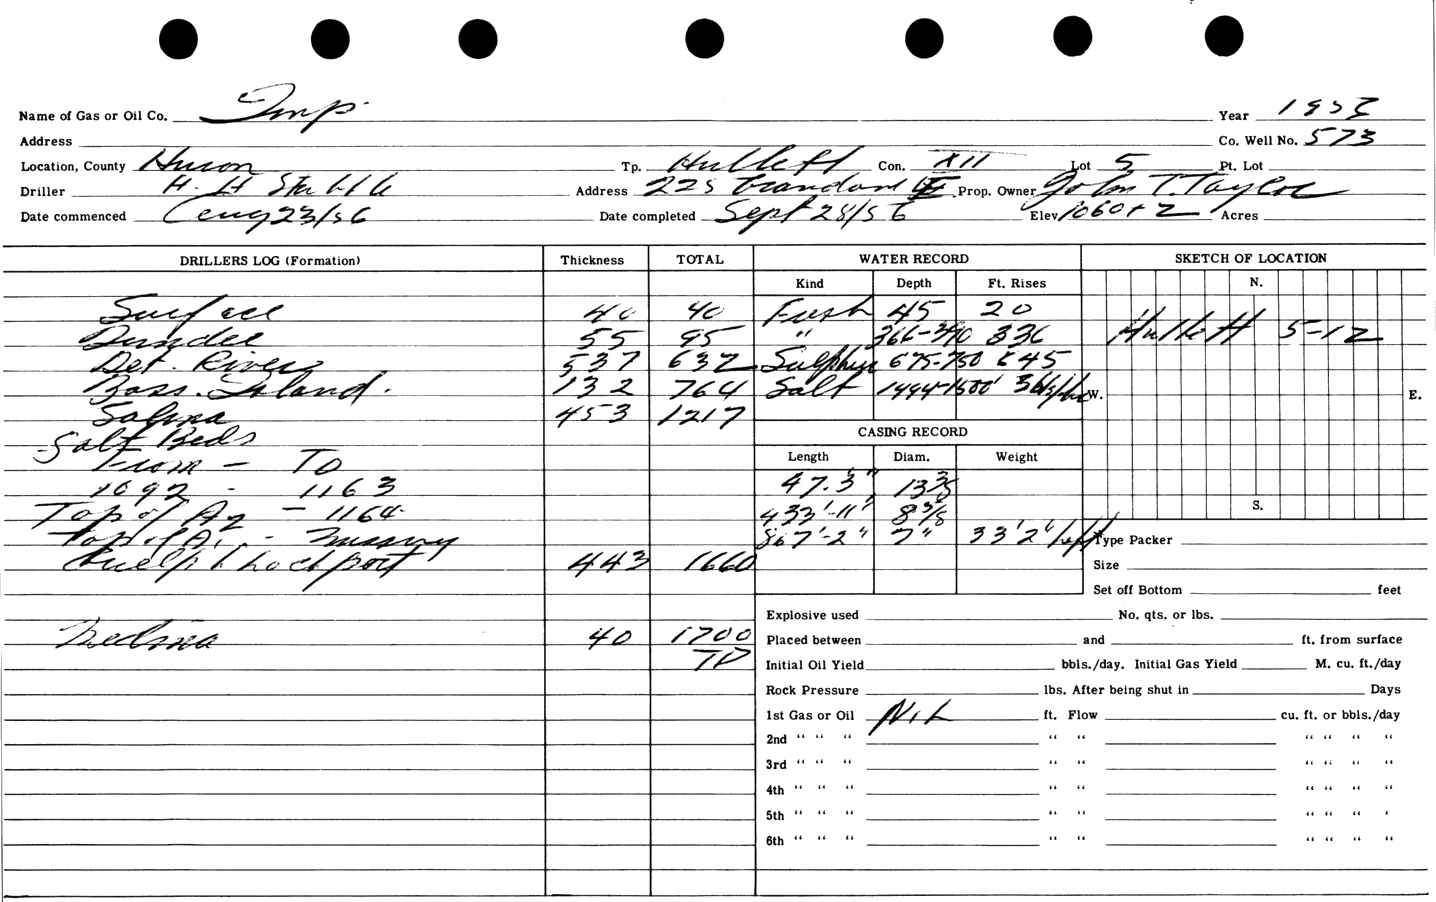 Name of Gas or Oil Co. Imp. Year 1956
Address Co. Well No. 573
Location, County Huron Tp. Hullett Con. XII Lot 5 Pt. Lot
Driller H. H. Stubble Address 225 Prop. Owner John T. Taylor
Date commenced Aug 23/56 Date completed Sept 28/56 Elev. 1060+2 Acres
DRILLERS LOG (Formation) Thickness TOTAL WATER RECORD SKETCH OF LOCATION
Kind Depth Ft. Rises N.
Surface 40 40 Fresh 45 20
Dundee 55 95 " 366-390 336 Hullett 5-12
Det. River 537 632 Sulphur 675-750 645
Bass. Island. 132 764 Salt 1494-1500' W. E.
Salina 453 1217
Salt Beds CASING RECORD
From - To Length Diam. Weight
1092 - 1163 47.3" 13 3/8
Top of A2 - 1164 433'-11" 8 5/8 S.
Top of A1 - Missing 867'-2" 7" 33'2" Type Packer
Guelph Lockport 443 1660 Size
Set off Bottom feet
Explosive used No. qts. or lbs.
Medina 40 1700 Placed between and ft. from surface
TD Initial Oil Yield bbls./day. Initial Gas Yield M. cu. ft./day
Rock Pressure lbs. After being shut in Days
1st Gas or Oil Nil ft. Flow cu. ft. or bbls./day
2nd " " " " " " " " "
3rd " " " " " " " " "
4th " " " " " " " " "
5th " " " " " " " " '
6th " " " " " " " " "